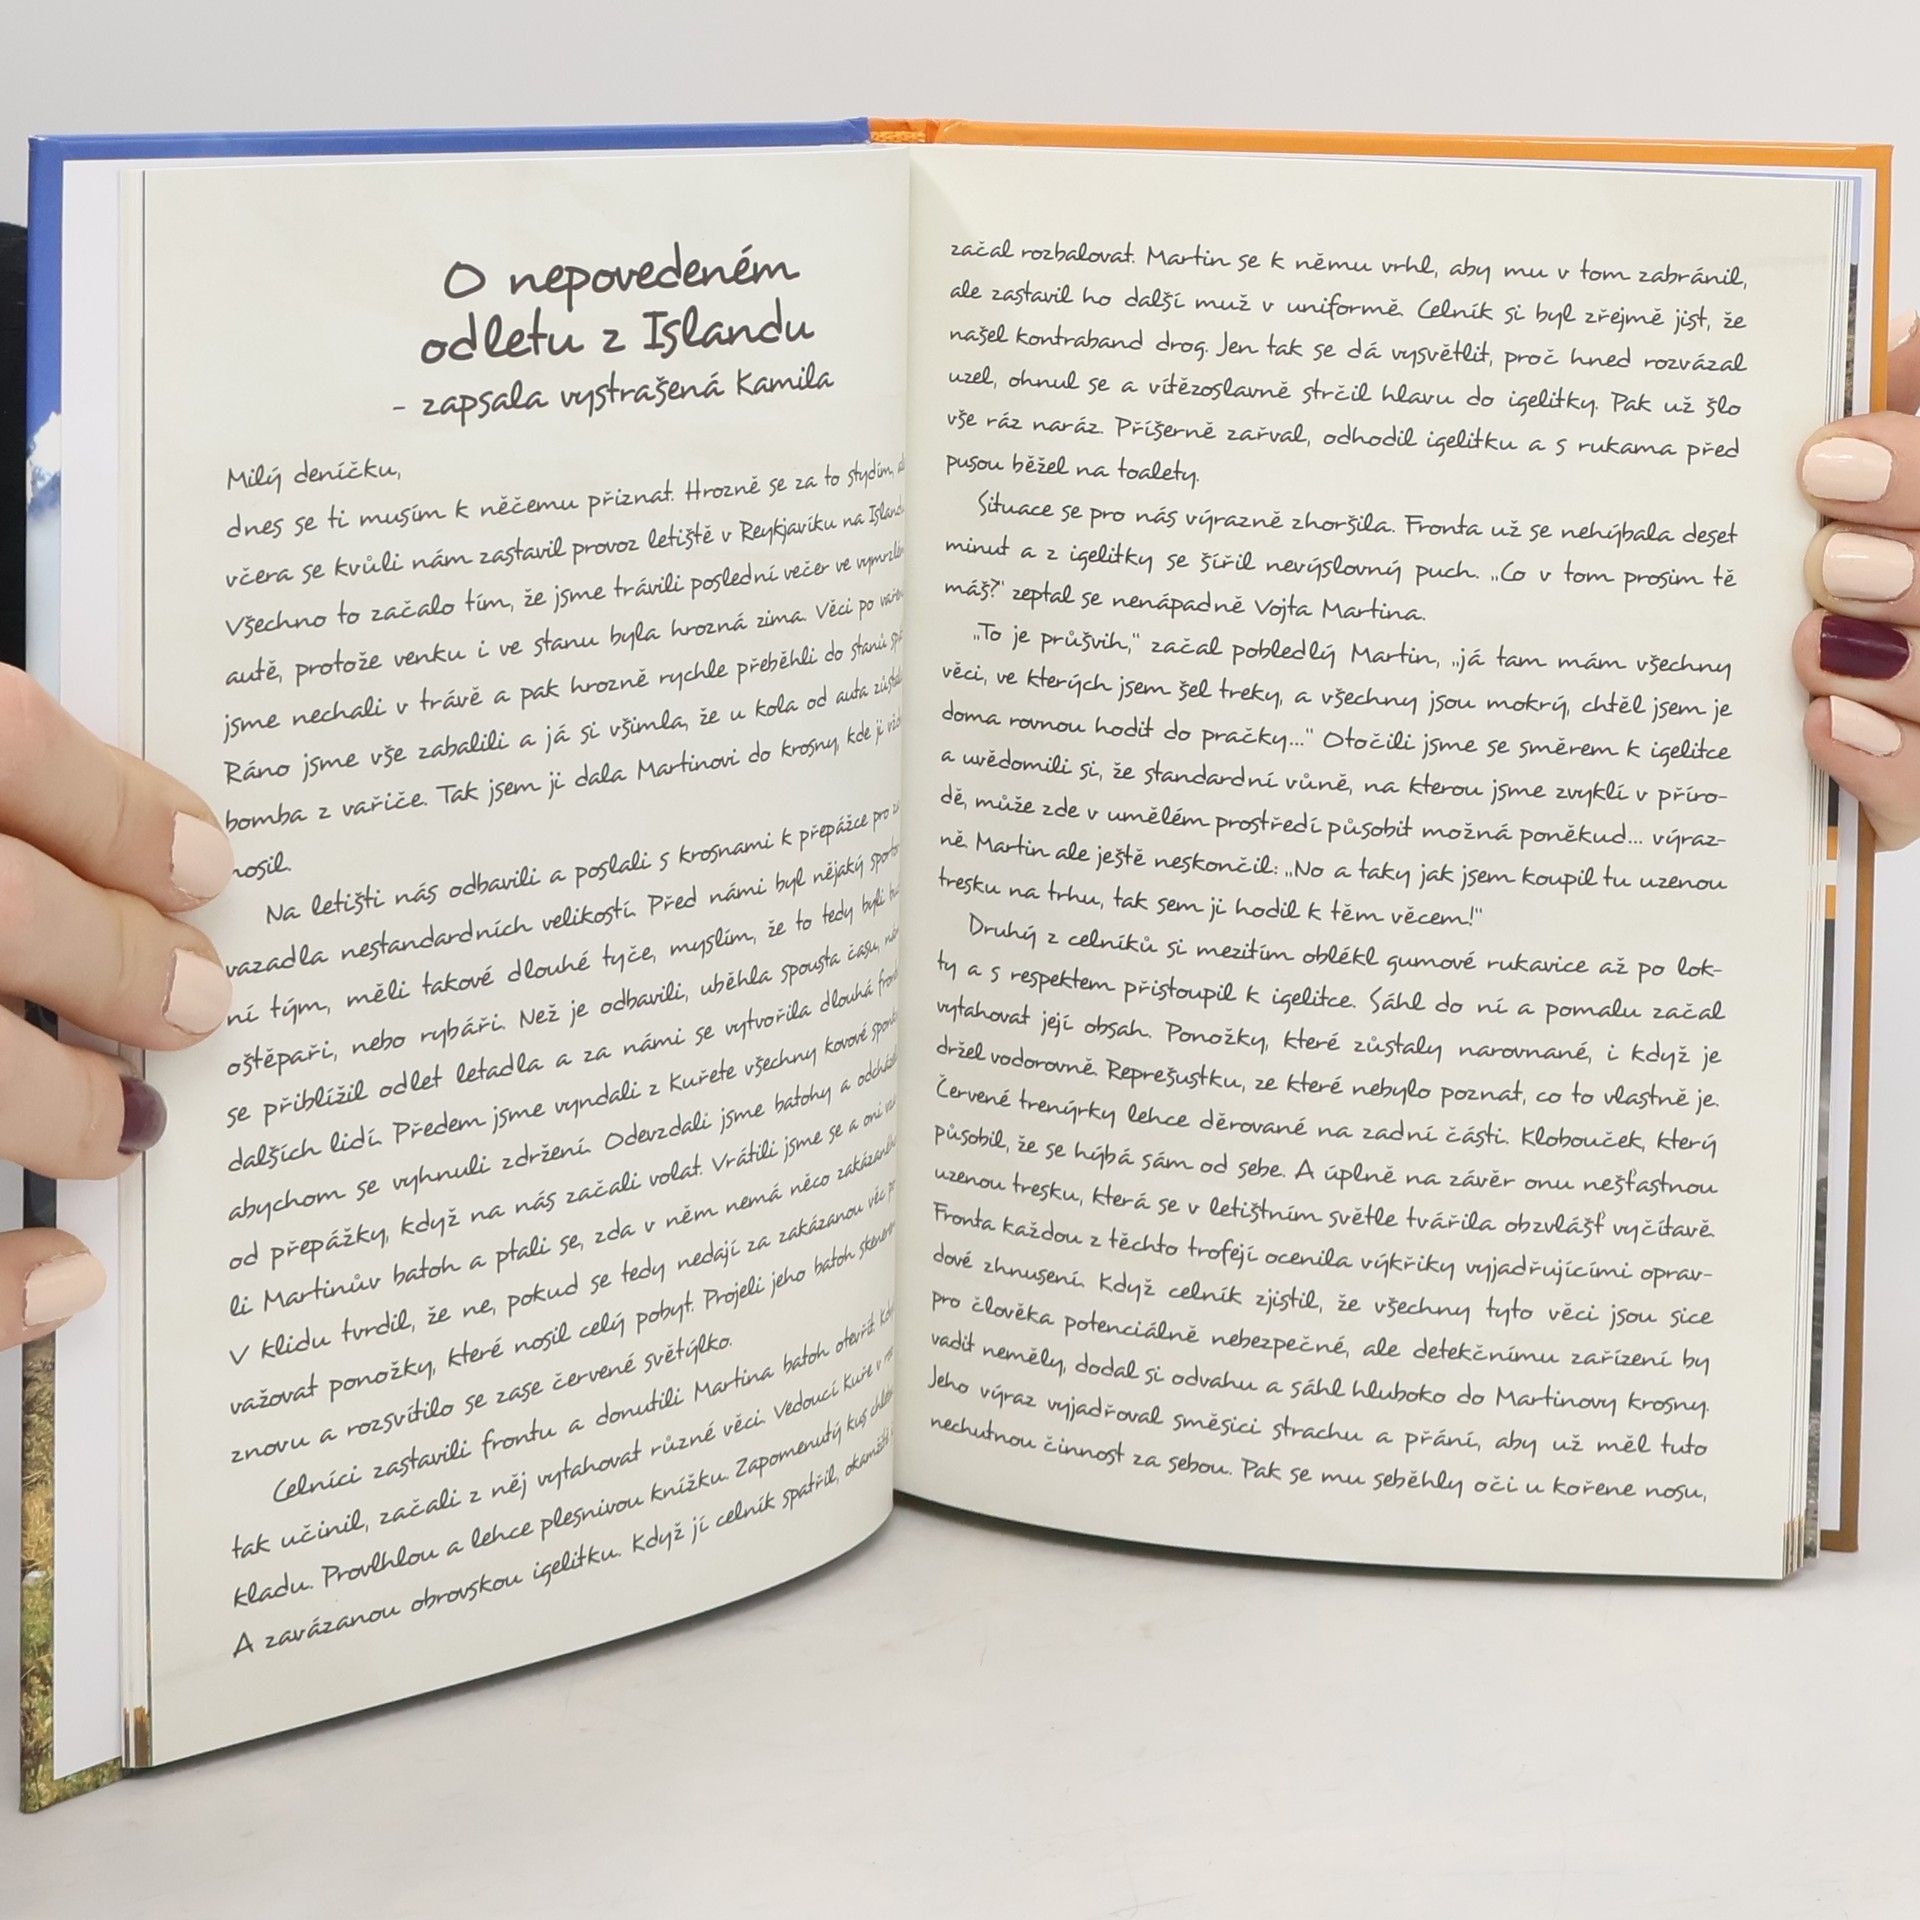 O nepovedeném
odletu z Islandu
- zapsala vystrašená Kamila
Milý deníčku,
dnes se ti musím k něčemu přiznat. Hrozně se za to stydím,
včera se kvůli nám zastavil provoz letiště v Reykjavíku na
Všechno to začalo tím, že jsme trávili poslední večer ve
autě, protože venku i ve stanu byla hrozná zima. Věci po
jsme nechali v trávě a pak hrozně rychle přeběhli do stanů
Ráno jsme vše zabalili a já si všimla, že u kola od auta
bomba z vařiče. Tak jsem ji dala Martinovi do krosny, kde ji
nosil.
Na letišti nás odbavili a poslali s krosnami k přepážce pro
vazadla nestandardních velikostí. Před námi byl nějaký
ní tým, měli takové dlouhé tyče, myslím, že to tedy byli
oštěpaři, nebo rybáři. Než je odbavili, uběhla spousta času,
se přiblížil odlet letadla a za námi se vytvořila dlouhá
dalších lidí. Předem jsme vyndali z Kuřete všechny kovové
abychom se vyhnuli zdržení. Odevzdali jsme batohy a
od přepážky, když na nás začali volat. Vrátili jsme se a oni
li Martinův batoh a ptali se, zda v něm nemá něco
V klidu tvrdil, že ne, pokud se tedy nedají za zakázanou věc
važovat ponožky, které nosil celý pobyt. Projeli jeho batoh
znovu a rozsvítilo se zase červené světýlko.
Celníci zastavili frontu a donutili Martina batoh otevřít.
tak učinil, začali z něj vytahovat různé věci. Vedoucí Kuře v
kladu. Provlhlou a lehce plesnivou knížku. Zapomenutý kus
A zavázanou obrovskou igelitku. Když jí celník spatřil,
začal rozbalovat. Martin se k němu vrhl, aby mu v tom zabránil,
ale zastavil ho další muž v uniformě. Celník si byl zřejmě jist, že
našel kontraband drog. Jen tak se dá vysvětlit, proč hned rozvázal
uzel, ohnul se a vítězoslavně strčil hlavu do igelitky. Pak už šlo
vše ráz naráz. Příšerně zařval, odhodil igelitku a s rukama před
pusou běžel na toalety.
Situace se pro nás výrazně zhoršila. Fronta už se nehýbala deset
minut a z igelitky se šířil nevýslovný puch. „Co v tom prosim tě
máš?" zeptal se nenápadně Vojta Martina.
„To je průšvih," začal pobledlý Martin, „já tam mám všechny
věci, ve kterých jsem šel treky, a všechny jsou mokrý, chtěl jsem je
doma rovnou hodit do pračky..." Otočili jsme se směrem k igelitce
a uvědomili si, že standardní vůně, na kterou jsme zvyklí v příro-
dě, může zde v umělém prostředí působit možná poněkud... výraz-
ně. Martin ale ještě neskončil: „No a taky jak jsem koupil tu uzenou
tresku na trhu, tak sem ji hodil k těm věcem!"
Druhý z celníků si mezitím oblékl gumové rukavice až po lok-
ty a s respektem přistoupil k igelitce. Sáhl do ní a pomalu začal
vytahovat její obsah. Ponožky, které zůstaly narovnané, i když je
držel vodorovně. Reprešustku, ze které nebylo poznat, co to vlastně je.
Červené trenýrky lehce děrované na zadní části. Klobouček, který
působil, že se hýbá sám od sebe. A úplně na závěr onu nešťastnou
uzenou tresku, která se v letištním světle tvářila obzvlášť vyčítavě.
Fronta každou z těchto trofejí ocenila výkřiky vyjadřujícími oprav-
dové zhnusení. Když celník zjistil, že všechny tyto věci jsou sice
pro člověka potenciálně nebezpečné, ale detekčnímu zařízení by
vadit neměly, dodal si odvahu a sáhl hluboko do Martinovy krosny.
Jeho výraz vyjadřoval směsici strachu a přání, aby už měl tuto
nechutnou činnost za sebou. Pak se mu seběhly oči u kořene nosu,